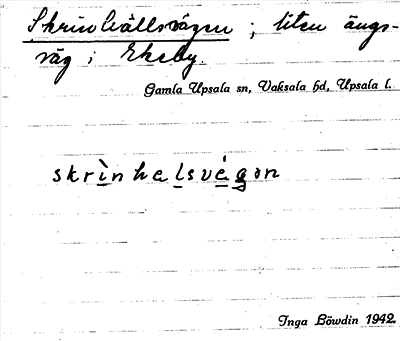 Skrinhällsvägen ; liten ängs-
väg i Ekeby.
Gamla Upsala sn, Vaksala hd, Upsala l.
skrìnhelsvégən
Inga Löwdin 1942.